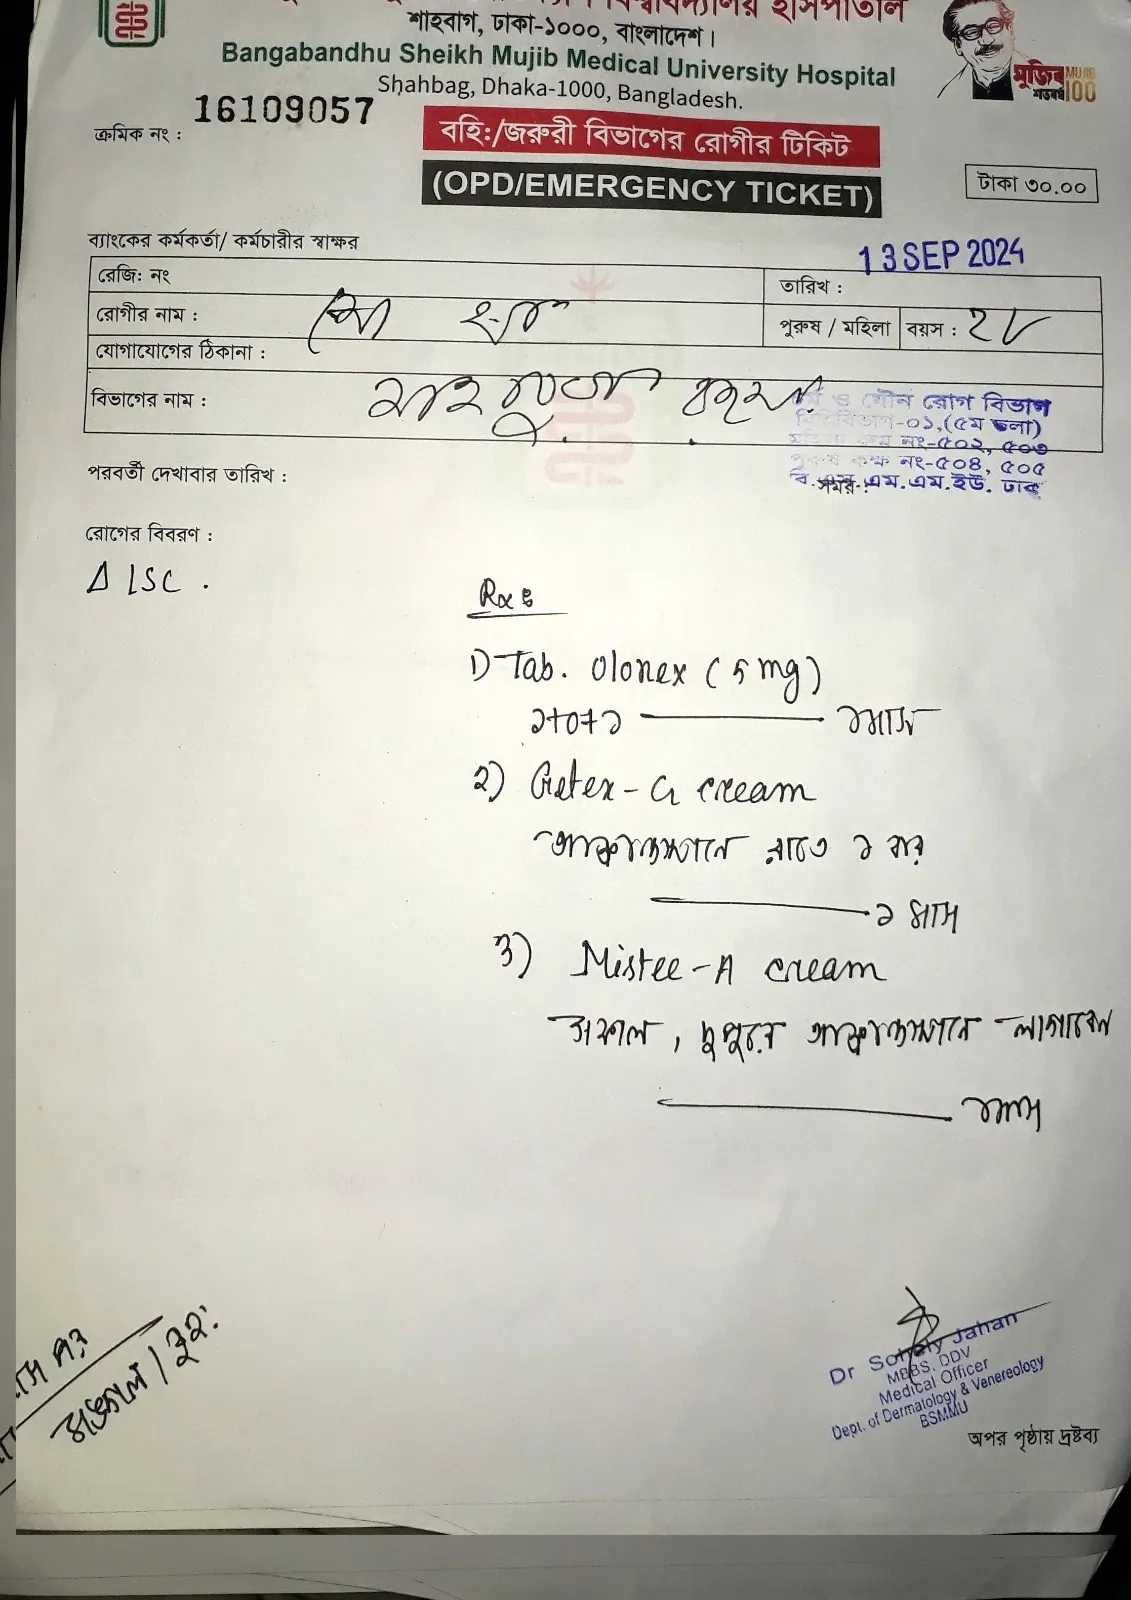 শাহবাগ, ঢাকা-১০০০, বাংলাদেশ।
Bangabandhu Sheikh Mujib Medical University Hospital
Shahbag, Dhaka-1000, Bangladesh.
মুজিব MUJIB
শতবর্ষ 100
ক্রমিক নং : 16109057
বহি:/জরুরী বিভাগের রোগীর টিকিট
(OPD/EMERGENCY TICKET)
টাকা ৩০.০০
ব্যাংকের কর্মকর্তা/ কর্মচারীর স্বাক্ষর
13 SEP 2024
রেজি: নং
তারিখ :
রোগীর নাম :
পুরুষ / মহিলা বয়স : ২৮
যোগাযোগের ঠিকানা :
বিভাগের নাম :
ও যৌন রোগ বিভাগ
বহির্বিভাগ-০১,(৫ম তলা)
মহিলা কক্ষ নং-৫০২, ৫০৩
পুরুষ কক্ষ নং-৫০৪, ৫০৫
বি.এস.এম.এম.ইউ. ঢাকা
পরবর্তী দেখাবার তারিখ :
সময় :
রোগের বিবরণ :
Δ LSC .
Rx :
1) Tab. Olonex (5 mg)
১+০+১ ১মাস
২) Getex-G cream
আক্রান্তস্থানে রাতে ১ বার
১ মাস
3) Mistee-A cream
সকাল , দুপুরে আক্রান্তস্থানে লাগাবেন
১মাস
পর
Dr Sohely Jahan
MBBS. DDV
Medical Officer
Dept. of Dermatology & Venereology
BSMMU
অপর পৃষ্ঠায় দ্রষ্টব্য